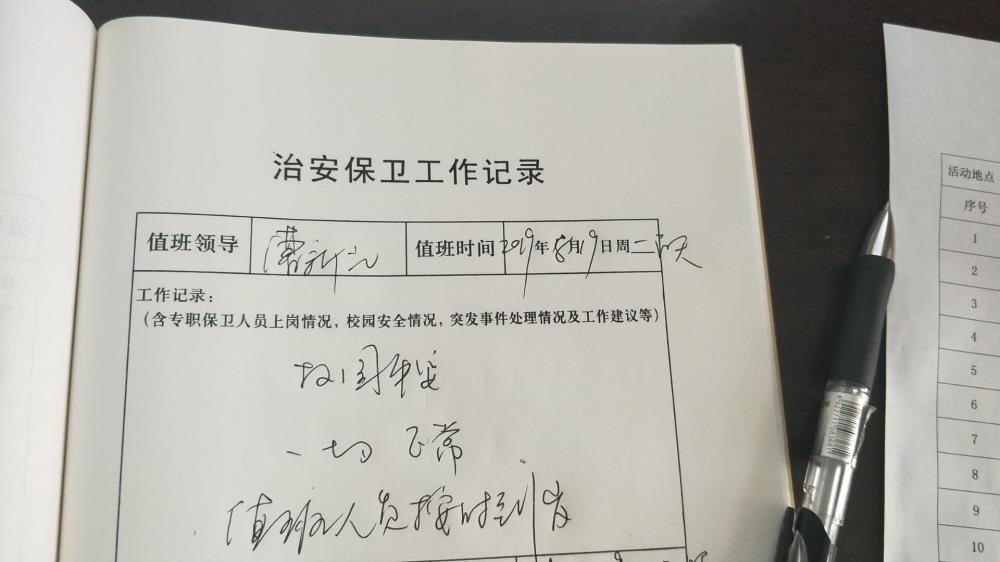 治安保卫工作记录
值班领导 曹新元 值班时间 2019年8月19日周二 雨天
工作记录：
（含专职保卫人员上岗情况，校园安全情况，突发事件处理情况及工作建议等）
校园平安
一切正常
值班人员按时到岗
活动地点
序号
1
2
3
4
5
6
7
8
9
10